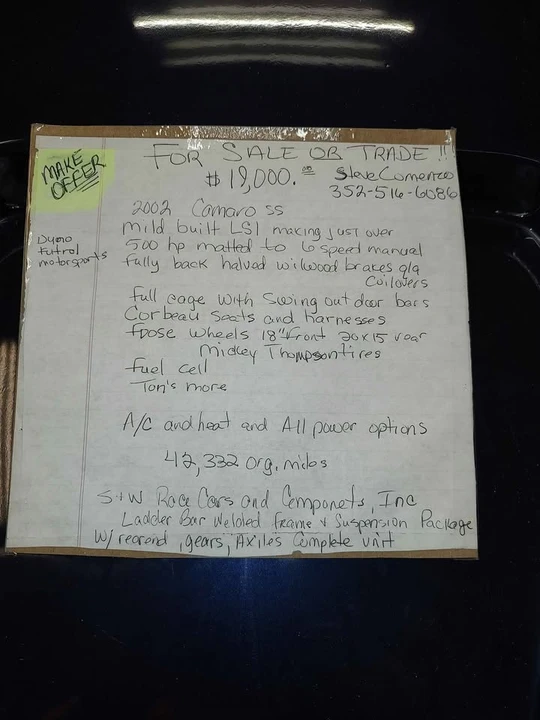 MAKE
OFFER
FOR SALE OR TRADE !!
$ 19,000.00 Steve Comenzo
352-516-6086
2002 Camaro SS
mild built LS1 making just over
500 hp matted to 6 speed manual
Dyno
Futral
motorsports
fully back halved wilwood brakes q/a
Coilovers
full cage with Swing out door bars
Corbeau Seats and harnesses
foose wheels 18" front 20x15 rear
Mickey Thompson tires
fuel cell
Ton's more
A/C and heat and All power options
42,332 org. miles
S+W Race Cars and Componets, Inc
Ladder Bar Welded frame & Suspension Package
W/ rearend, gears, Axiles Complete unit